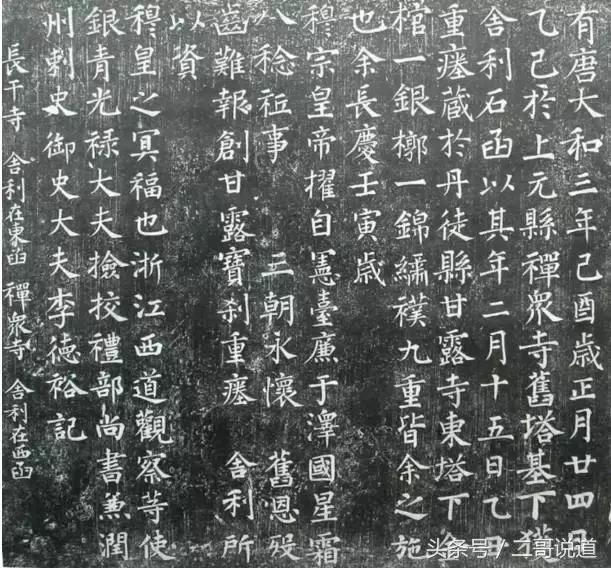 有唐大和三年己酉歲正月廿四日
乙巳於上元縣禪衆寺舊塔基下獲
舍利石函以其年二月十五日乙丑
重瘞藏於丹徒縣甘露寺東塔下金
棺一銀槨一錦繡襆九重皆余之施
也余長慶壬寅歲
穆宗皇帝擢自憲臺廉于澤國星霜
八稔祗事 三朝永懷 舊恩歿
齒難報創甘露寶刹重瘞 舍利所
以資
穆皇之冥福也浙江西道觀察等使
銀青光祿大夫撿挍禮部尚書兼潤
州刺史御史大夫李德裕記
長干寺 舍利在東函 禪衆寺 舍利在西函
头条号/二哥说道